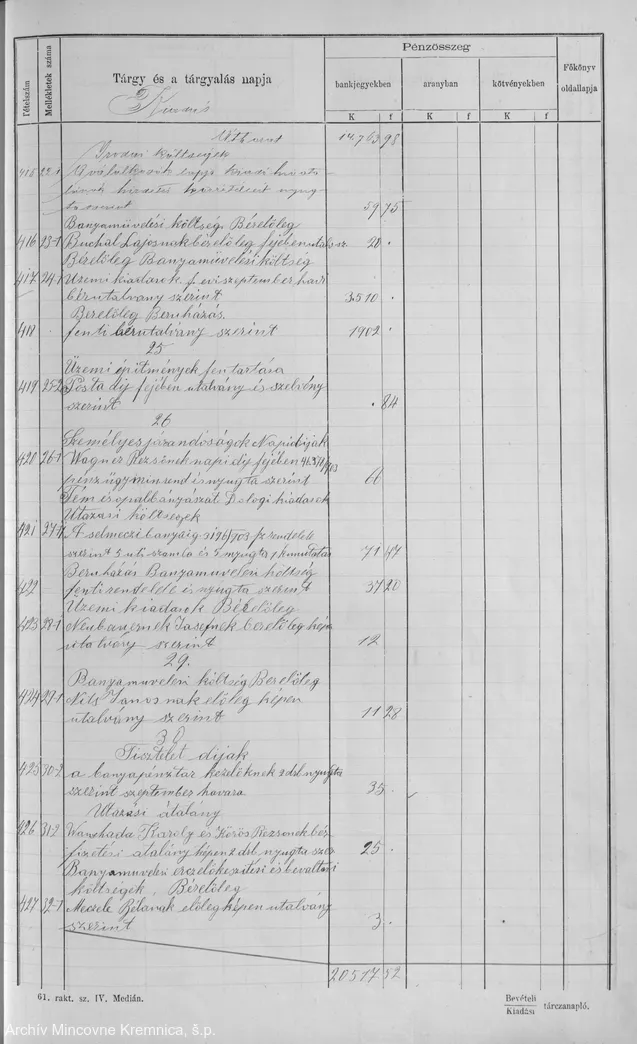 Pénzösszeg
Tételszám
Mellékletek száma
Tárgy és a tárgyalás napja
bankjegyekben
aranyban
kötvényekben
Főkönyv oldallapja
K f K f K f
Kiadás
Áthozat 14.763 98
Irodai költségek
415 22-1
szerint 59 75
Bányaművelési költség. Bérelőleg
416 23-1 Buchal Lajosnak bérelőleg fejében utalv. sz. 20 .
Bérelőleg Bányaművelési költség
417 24-1 Üzemi kiadások f. évi szeptember havi
bérutalvány szerint 3510 .
Bérelőleg Beruházás.
418 fenti bérutalvány szerint 1902 .
25
Üzemi építmények fentartása
419 25-2 Posta díj fejében utalvány és szelvény
szerint . 84
26
Személyes járandóságok Napidíjak
420 26-1 Wagner Rezsőnek napi díj fejében
pénzügymin rend és nyugta szerint 66
Fém és opálbányászat Dologi kiadások
Utazási költségek
421 27-7 A selmeczi bányaig. 3196/903 sz rendelete
szerint 5 uti számla és 5 nyugta 1 kimutatás 71 47
Beruházás Bányaművelési költség
422 fenti rendelete és nyugta szerint 37 20
Üzemi kiadások Bérelőleg
423 28-1 Neubauernek Josefnek bérelőleg képen
utalvány szerint 12
29.
Bányaművelési költség Bérelőleg
424 29-1 Jánosnak előleg képen
utalvány szerint 11 28
30
Tisztelet díjak
425 30-2 a bányapénztár kezelőknek 2 drb. nyugta
szerint szeptember havára 35 .
Utazási átalány
426 31-2 Károly és Vörös Rezsőnek bér
fizetési átalány képen 2 drb. nyugta szer. 25 .
Bányaművelési érczelőkészítési és beváltási
költségek, Bérelőleg
427 32-1 Meczele Bélának előleg képen utalvány
szerint 3 .
20517 52
61. rakt. sz. IV. Medián.
Bevételi
Kiadási tárczanapló.
Archív Mincovne Kremnica, š.p.